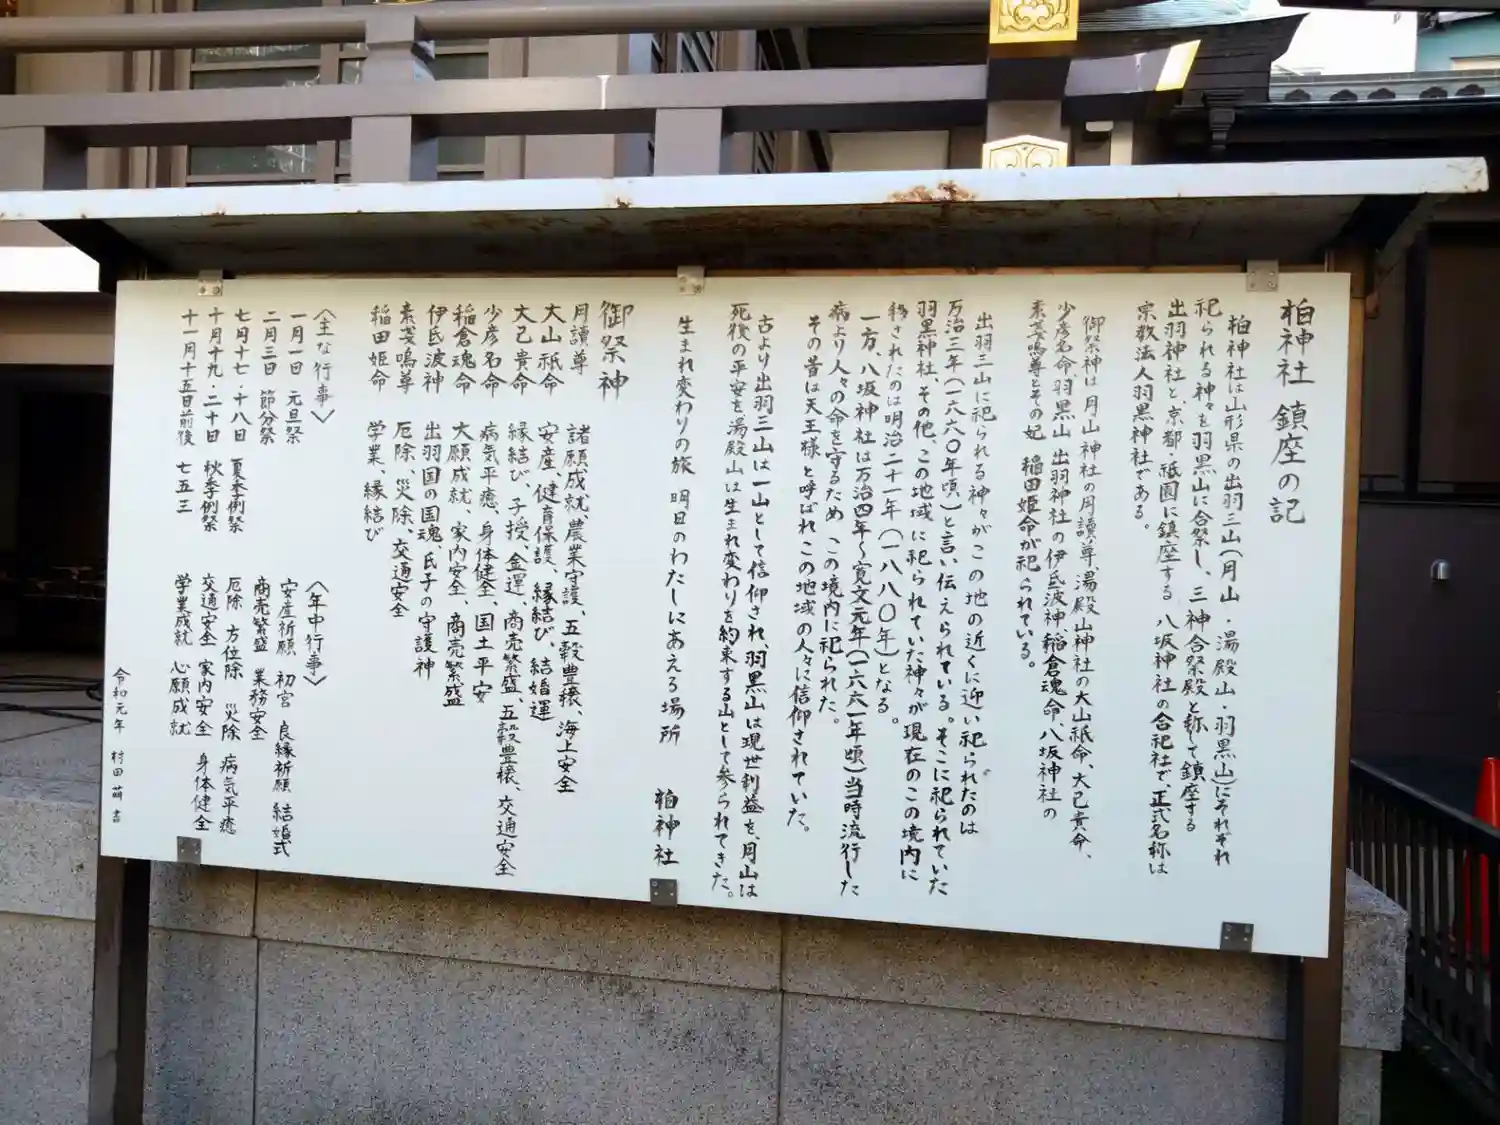 柏神社 鎮座の記
柏神社は山形県の出羽三山(月山・湯殿山・羽黒山)にそれぞれ
祀られる神々を羽黒山に合祭し、三神合祭殿と称して鎮座する
出羽神社と、京都・祇園に鎮座する 八坂神社の合祀社で、正式名称は
宗教法人羽黒神社である。
御祭神は月山神社の月讀尊、湯殿山神社の大山祇命、大己貴命、
少彦名命、羽黒山 出羽神社の伊氐波神、稲倉魂命、八坂神社の
素戔嗚尊とその妃 稲田姫命が祀られている。
出羽三山に祀られる神々がこの地の近くに迎い祀られたのは
万治三年(一六六〇年頃)と言い伝えられている。そこに祀られていた
羽黒神社、その他、この地域に祀られていた神々が現在のこの境内に
移されたのは明治二十一年(一八八〇年)となる。
一方、八坂神社は万治四年〜寛文元年(一六六一年頃)当時流行した
病より人々の命を守るため この境内に祀られた。
その昔は天王様と呼ばれこの地域の人々に信仰されていた。
古より出羽三山は一山として信仰され、羽黒山は現世利益を、月山は
死後の平安を、湯殿山は生まれ変わりを約束する山として参られてきた。
生まれ変わりの旅 明日のわたしにあえる場所 柏神社
御祭神
月讀尊 諸願成就、農業守護、五穀豊穣、海上安全
大山祇命 安産、健育保護、縁結び、結婚運
大己貴命 縁結び、子授、金運、商売繁盛、五穀豊穣、交通安全
少彦名命 病気平癒、身体健全、国土平安
稲倉魂命 大願成就、家内安全、商売繁盛
伊氐波神 出羽国の国魂、氏子の守護神
素戔嗚尊 厄除、災除、交通安全
稲田姫命 学業、縁結び
〈主な行事〉
一月一日 元旦祭
二月三日 節分祭
七月十七・十八日 夏季例祭
十月十九・二十日 秋季例祭
十一月十五日前後 七五三
〈年中行事〉
安産祈願 初宮 良縁祈願 結婚式
商売繁盛 業務安全
厄除 方位除 災除 病気平癒
交通安全 家内安全 身体健全
学業成就 心願成就
令和元年 村田萌 書